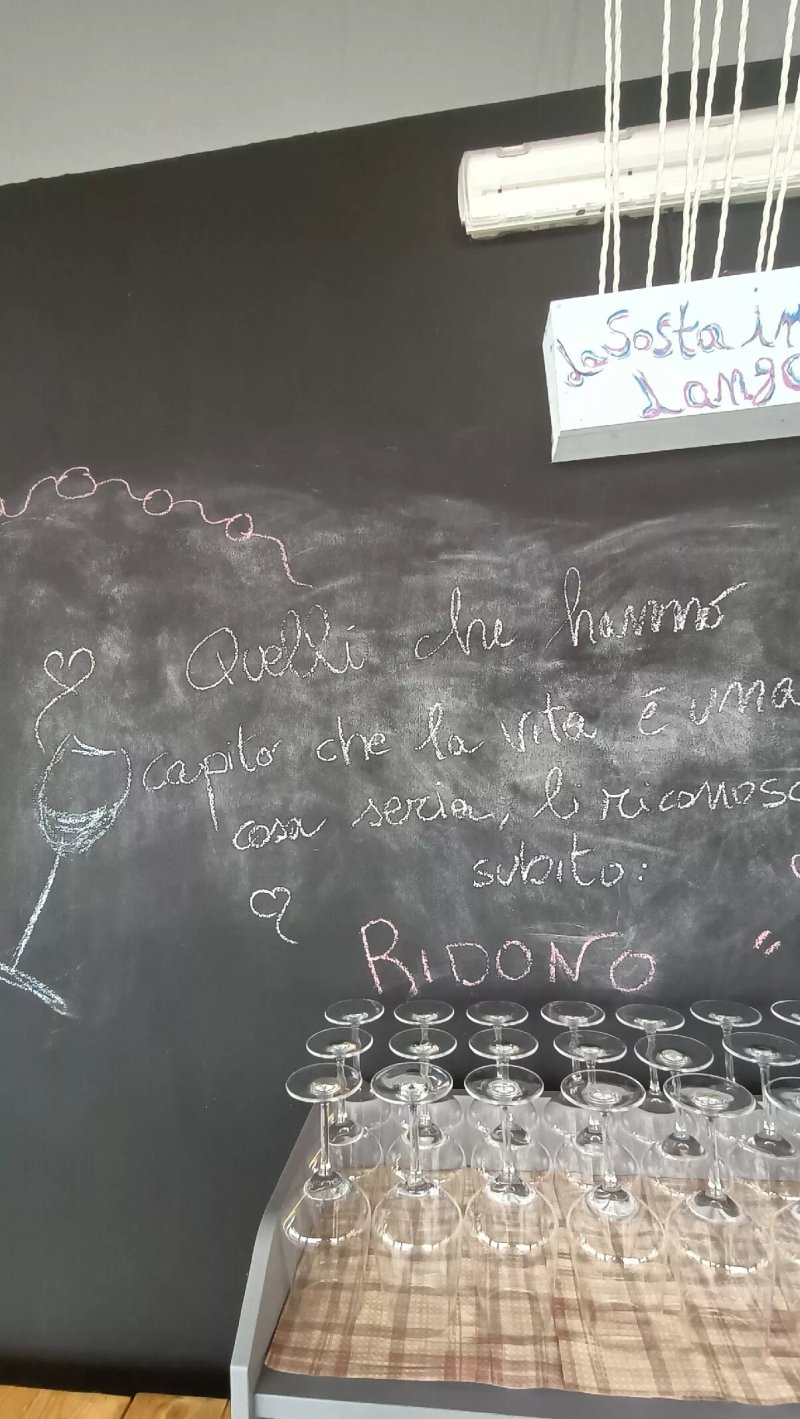 La Sosta in
Lang
Quelli che hanno
capito che la vita é una
cosa seria, li riconosc
subito:
RIDONO "